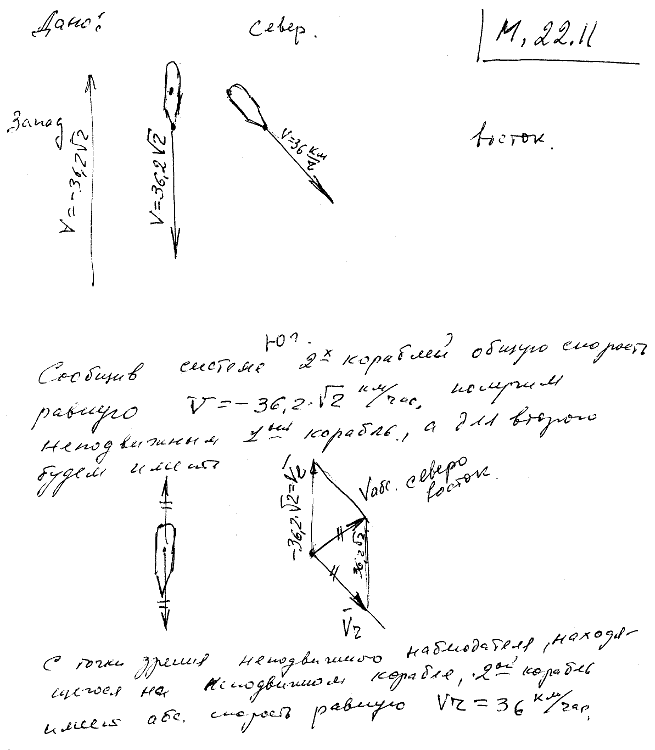 Дано: Север. М. 22.11
Запад
V=-36,2√2
V=36,2√2
V=36 км/ч
Восток.
Юг.
Сообщив системе 2х кораблей общую скорость
равную V=-36,2·√2 км/час, получим
неподвижным 1ый корабль, а для второго
будем иметь
-36,2·√2=Vе
Vабс. северо
восток.
36,2√2
Vr
С точки зрения неподвижного наблюдателя, находя-
щегося на неподвижном корабле, 2ой корабль
имеет абс. скорость равную Vr=36 км/час.